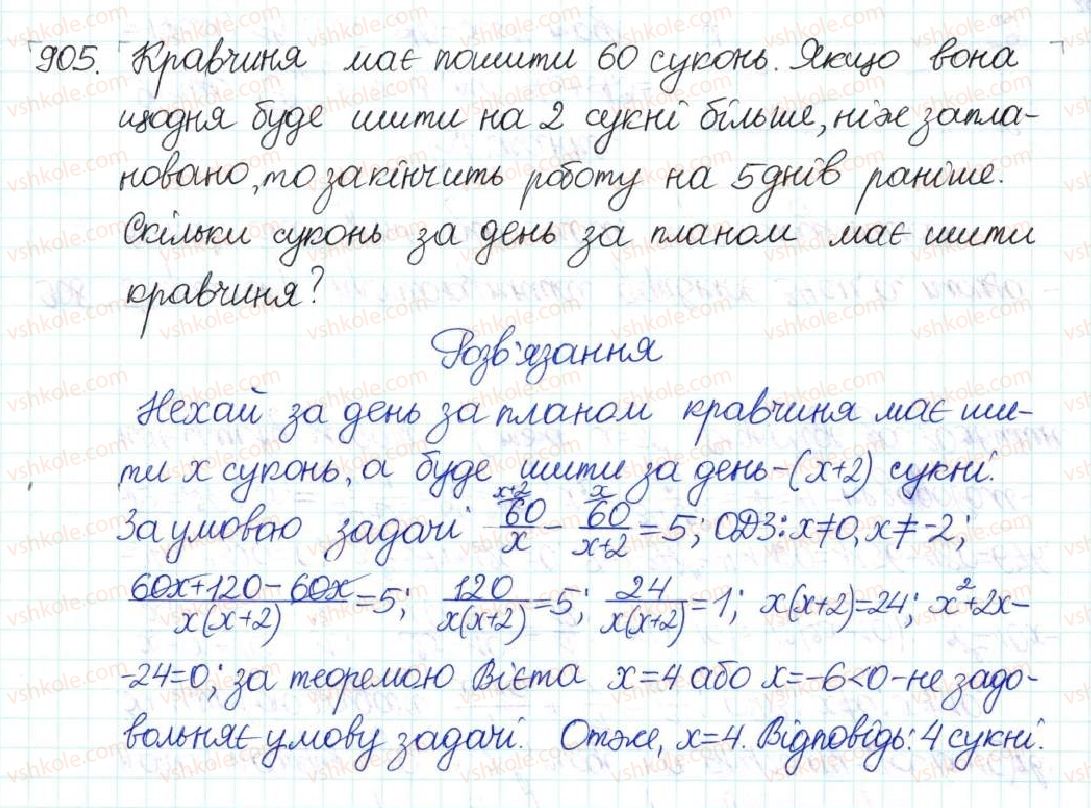 905. Кравчиня має пошити 60 суконь. Якщо вона
щодня буде шити на 2 сукні більше, ніж запла-
новано, то закінчить роботу на 5 днів раніше.
Скільки суконь за день за планом має шити
кравчиня?
Розв'язання
Нехай за день за планом кравчиня має ши-
ти x суконь, а буде шити за день - (x+2) сукні.
За умовою задачі x+2/ 60/x - x/ 60/(x+2) = 5; ОДЗ: x≠0, x≠-2;
(60x+120-60x)/(x(x+2)) = 5; 120/(x(x+2)) = 5; 24/(x(x+2)) = 1; x(x+2)=24; x²+2x-
-24=0; за теоремою Вієта x=4 або x=-6<0 - не задо-
вольняє умову задачі. Отже, x=4. Відповідь: 4 сукні.